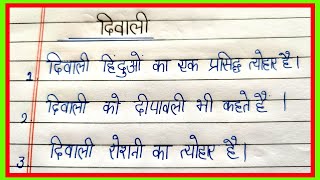 दिवाली
1. दिवाली हिंदुओं का एक प्रसिद्ध त्योहार है।
2. दिवाली को दीपावली भी कहते हैं ।
3 दिवाली रोशनी का त्योहार है।